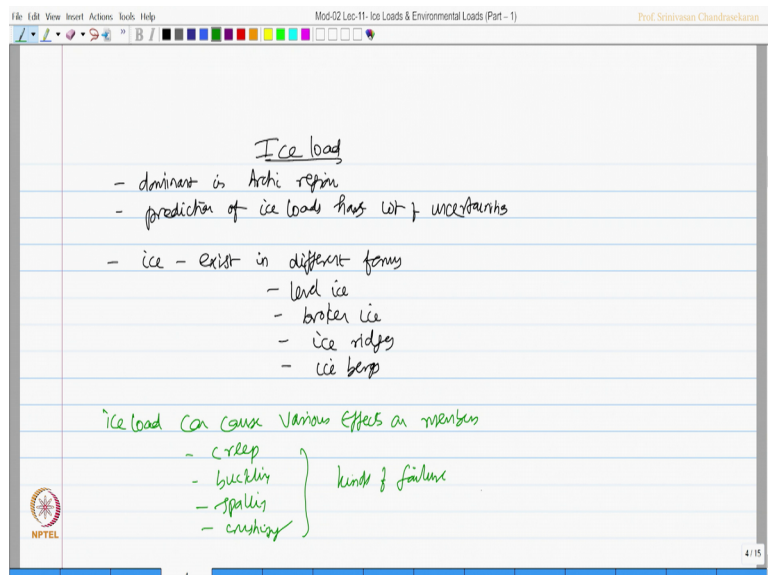 File Edit View Insert Actions Tools Help
Mod-02 Lec-11- Ice Loads & Environmental Loads (Part – 1)
Prof. Srinivasan Chandrasekaran
Ice load
- dominant in Arctic region
- prediction of ice loads has lot of uncertainties
- ice - exist in different forms
- level ice
- broken ice
- ice ridges
- ice bergs
ice load can cause various effects on members
- creep
- buckling
- spalling
- crushing
kinds of failure
NPTEL
4 / 15